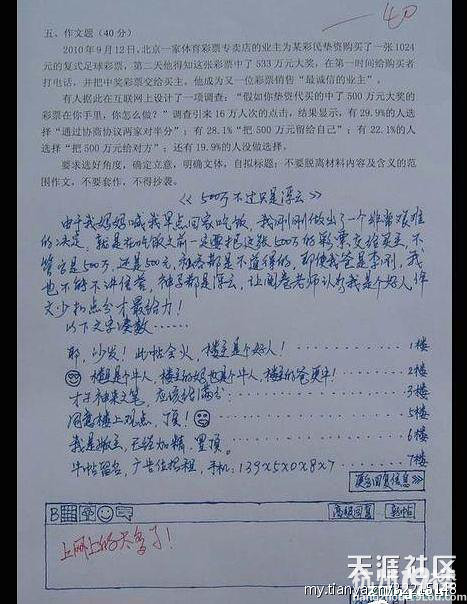 -40
五、作文题（40分）
2010年9月12日，北京一家体育彩票专卖店的业主为某彩民垫资购买了一张1024
元的复式足球彩票，第二天他得知这张彩票中了533万元大奖，在第一时间给购买者
打电话，并把中奖彩票交给买主，他成为又一位彩票销售“最诚信的业主”。
有人据此在互联网上设计了一项调查：“假如你垫资代买的中了500万元大奖的
彩票在你手里，你怎么做？”调查引来16万人次的点击，结果显示，有29.9%的人选
择“通过协商协议两家对半分”；有28.1%“把500万元留给自己”；有22.1%的人
选择“把500万元给对方”；还有19.9%的人没做选择。
要求选好角度，确定立意，明确文体，自拟标题；不要脱离材料内容及含义的范
围作文，不要套作，不得抄袭。
《500万不过只是浮云》
由于我妈妈喊我早点回家吃饭，我刚刚做出了一个非常艰难
的决定，就是在吃饭之前一定要把这张500万的彩票交给买主，不
管它是500万，还是500元，私吞都是不道德的，即便我爸是李刚，我
也不能不讲信誉，神马都是浮云，让阅卷老师认为我是个好人，作
文少扣点分才最给力！
以下文字凑数……
耶，沙发！此帖会火，楼主是个好人！ 1楼
楼主是个牛人，楼主的妈也是个牛人，楼主的爸更牛！ 2楼
才子神来之笔，应该给满分 3楼
同意楼上观点，顶！ 5楼
我是版主，已经加精，置顶。 6楼
牛帖留名，广告位招租，手机：139x5x0x8x7 7楼
更多回复信息>>
B
高级回复
上网上的太多了！
天涯社区
my.tianya.cn